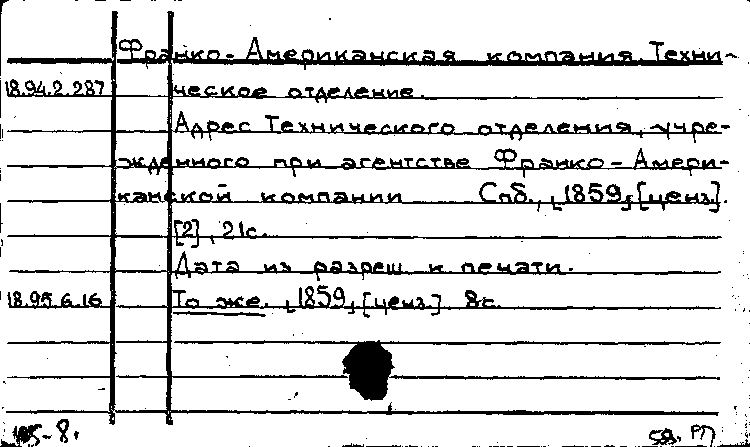 Франко-Американская компания. Техни-
18.94.2.287 ческое отделение.
Адрес Технического отделения, учре-
жденного при агентстве Франко-Амери-
канской компании Спб., ⌊1859⌋ [ценз].
[2], 21с.
Дата из разреш. к печати.
18.95.6.16 То же. ⌊1859⌋ [ценз.] 8с.
-8. 58.